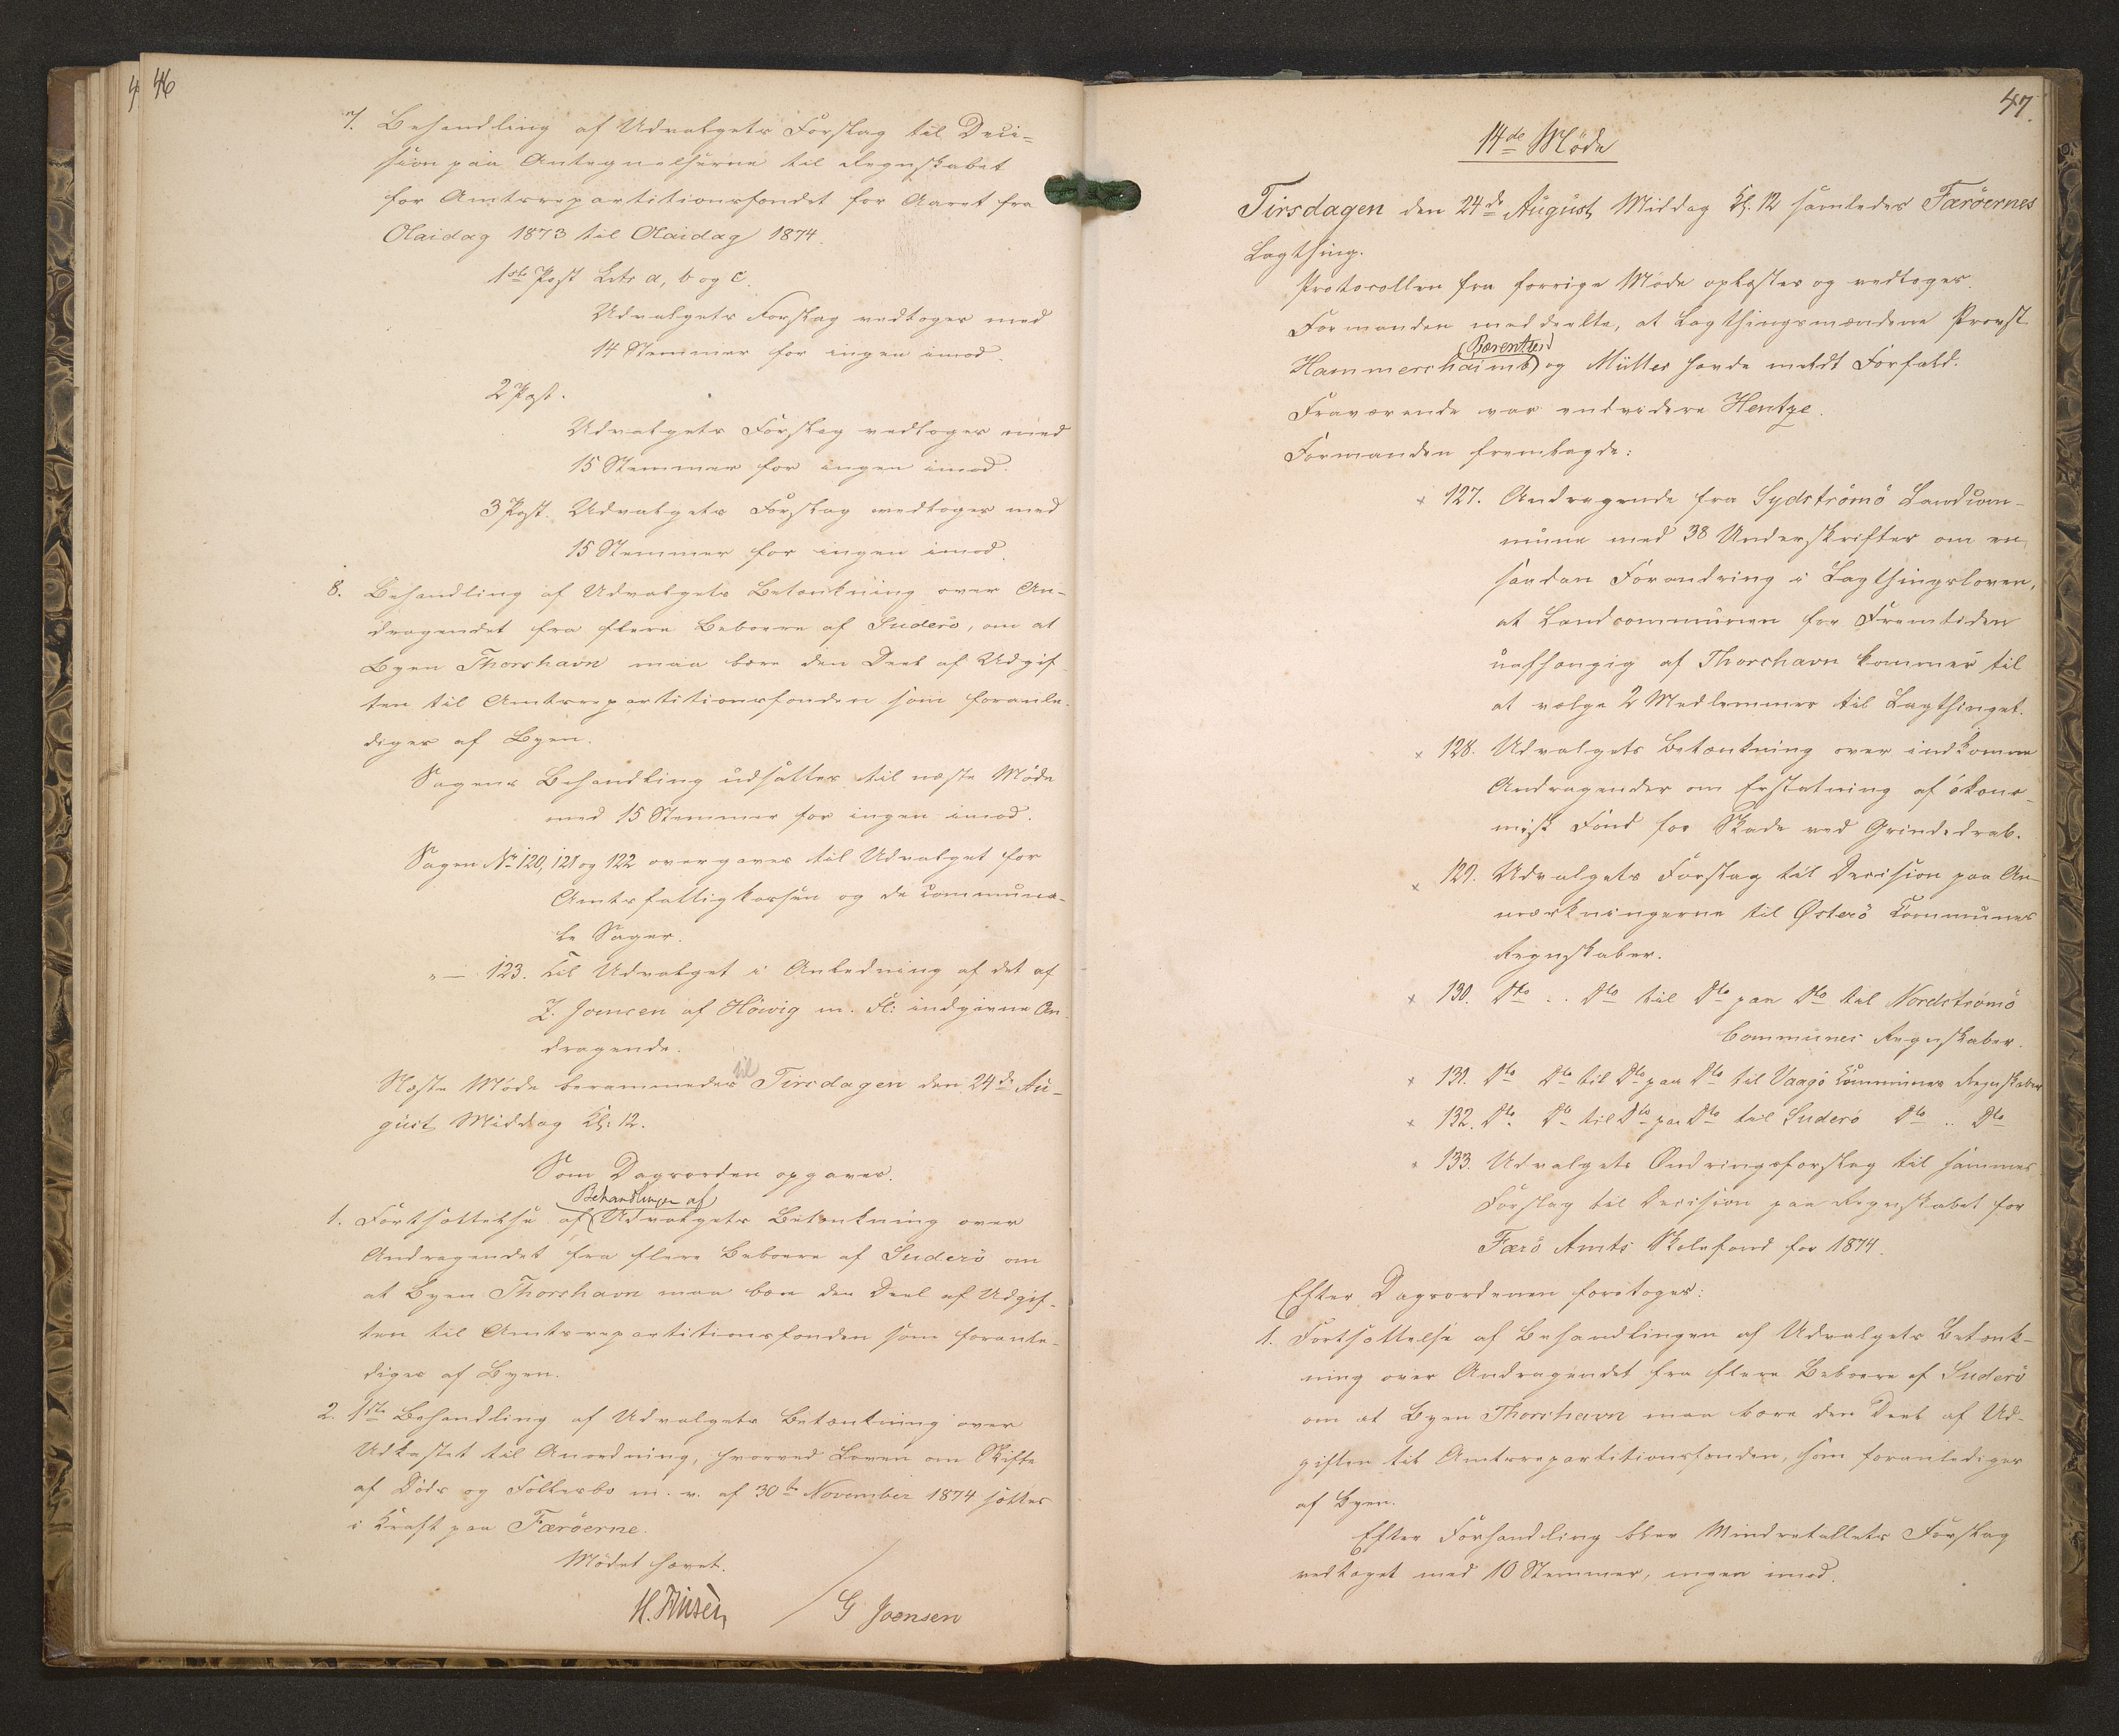 46
7. Behandling af Udvalgets Forslag til Deci-
sion paa Antegnelserne til Regnskabet
for Amtsrepartitionsfondet for Aaret fra
Olaidag 1873 til Olaidag 1874.
1ste Post Litr a, b og c.
Udvalgets Forslag vedtoges med
14 Stemmer for ingen imod.
2 Post.
Udvalgets Forslag vedtoges med
15 Stemmer for ingen imod.
3 Post. Udvalgets Forslag vedtoges med
15 Stemmer for ingen imod.
8. Behandling af Udvalgets Betænkning over An-
dragendet fra flere Beboere af Suderö, om at
Byen Thorshavn maa bære den Deel af Udgif-
ten til Amtsrepartitionsfonden som foranle-
diges af Byen.
Sagens Behandling udsattes til næste Möde
med 15 Stemmer for ingen imod.
Sagen No 120, 121 og 122 overgaves til Udvalget for
Amtsfattigkassen og de communa-
le Sager.
" — 123. til Udvalget i Anledning af det af
J. Joensen af Höivig m. Fl: indgivne An-
dragende.
Næste Möde berammedes til Tirsdagen den 24de Au-
gust Middag Kl: 12.
Som Dagsorden opgaves.
Behandlingen af
1. Fortsættelse af Udvalgets Betænkning over
Andragendet fra flere Beboere af Suderö om
at Byen Thorshavn maa bære den Deel af Udgif-
ten til Amtsrepartitionsfonden som foranle-
diges af Byen.
2. 1ste Behandling af Udvalgets Betænkning over
Udkastet til Anordning, hvorved Loven om Skifte
af Döds og Fællesbo m. v. af 30te November 1874 sættes
i Kraft paa Færöerne.
Mödet hævet.
H. Finsen / G Joensen
47.
14de Möde
Tirsdagen den 24de August Middag Kl. 12 samledes Færöernes
Lagthing.
Protocollen fra forrige Möde oplæstes og vedtoges.
Formanden meddeelte, at Lagthingsmændene Provst
Bærentsen
Hammershaimb og Müller havde meldt Forfald.
Fraværende var endvidere Hentze.
Formanden fremlagde:
x 127. Andragende fra Sydströmö Landcom-
mune med 38 Underskrifter om en
saadan Forandring i Lagthingsloven,
at Landcommunen for Fremtiden
uafhængig af Thorshavn kommer til
at vælge 2 Medlemmer til Lagthinget.
x 128. Udvalgets Betænkning over indkomne
Andragender om Erstatning af ökono-
misk Fond for Skade ved Grindedrab.
x 129. Udvalgets Forslag til Decision paa An-
mærkningerne til Österö Communes
Regnskaber.
x 130. Dto .. Dto til Dto paa Dto til Nordströmö
Communes Regnskaber.
x 131. Dto Dto til Dto paa Dto til Vaagö Communes Regnskaber
x 132. Dto. Dto til Dto paa Dto til Suderö Dto .. Dto
x 133. Udvalgets Ændringsforslag til sammes
Forslag til Decision paa Regnskabet for
Færö Amts Skolefond for 1874.
Efter Dagsordenen foretoges:
1. Fortsættelse af Behandlingen af Udvalgets Betænk-
ning over Andragendet fra flere Beboere af Suderö
om at Byen Thorshavn maa bære den Deel af Ud-
giften til Amtsrepartitionsfonden, som foranlediges
af Byen.
Efter Forhandling blev Mindretallets Forslag
vedtaget med 10 Stemmer, ingen imod.